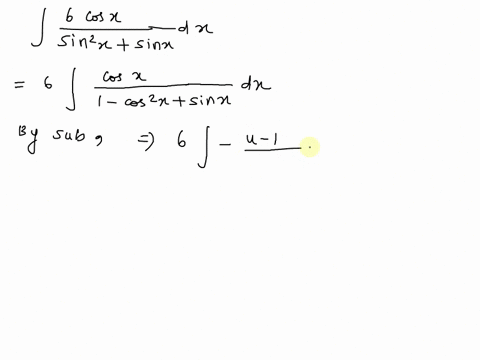 ∫ 6 cos x / sin²x + sinx dx
= 6 ∫ cos x / 1 - cos²x + sinx dx
By sub, ⇒ 6 ∫ - u-1